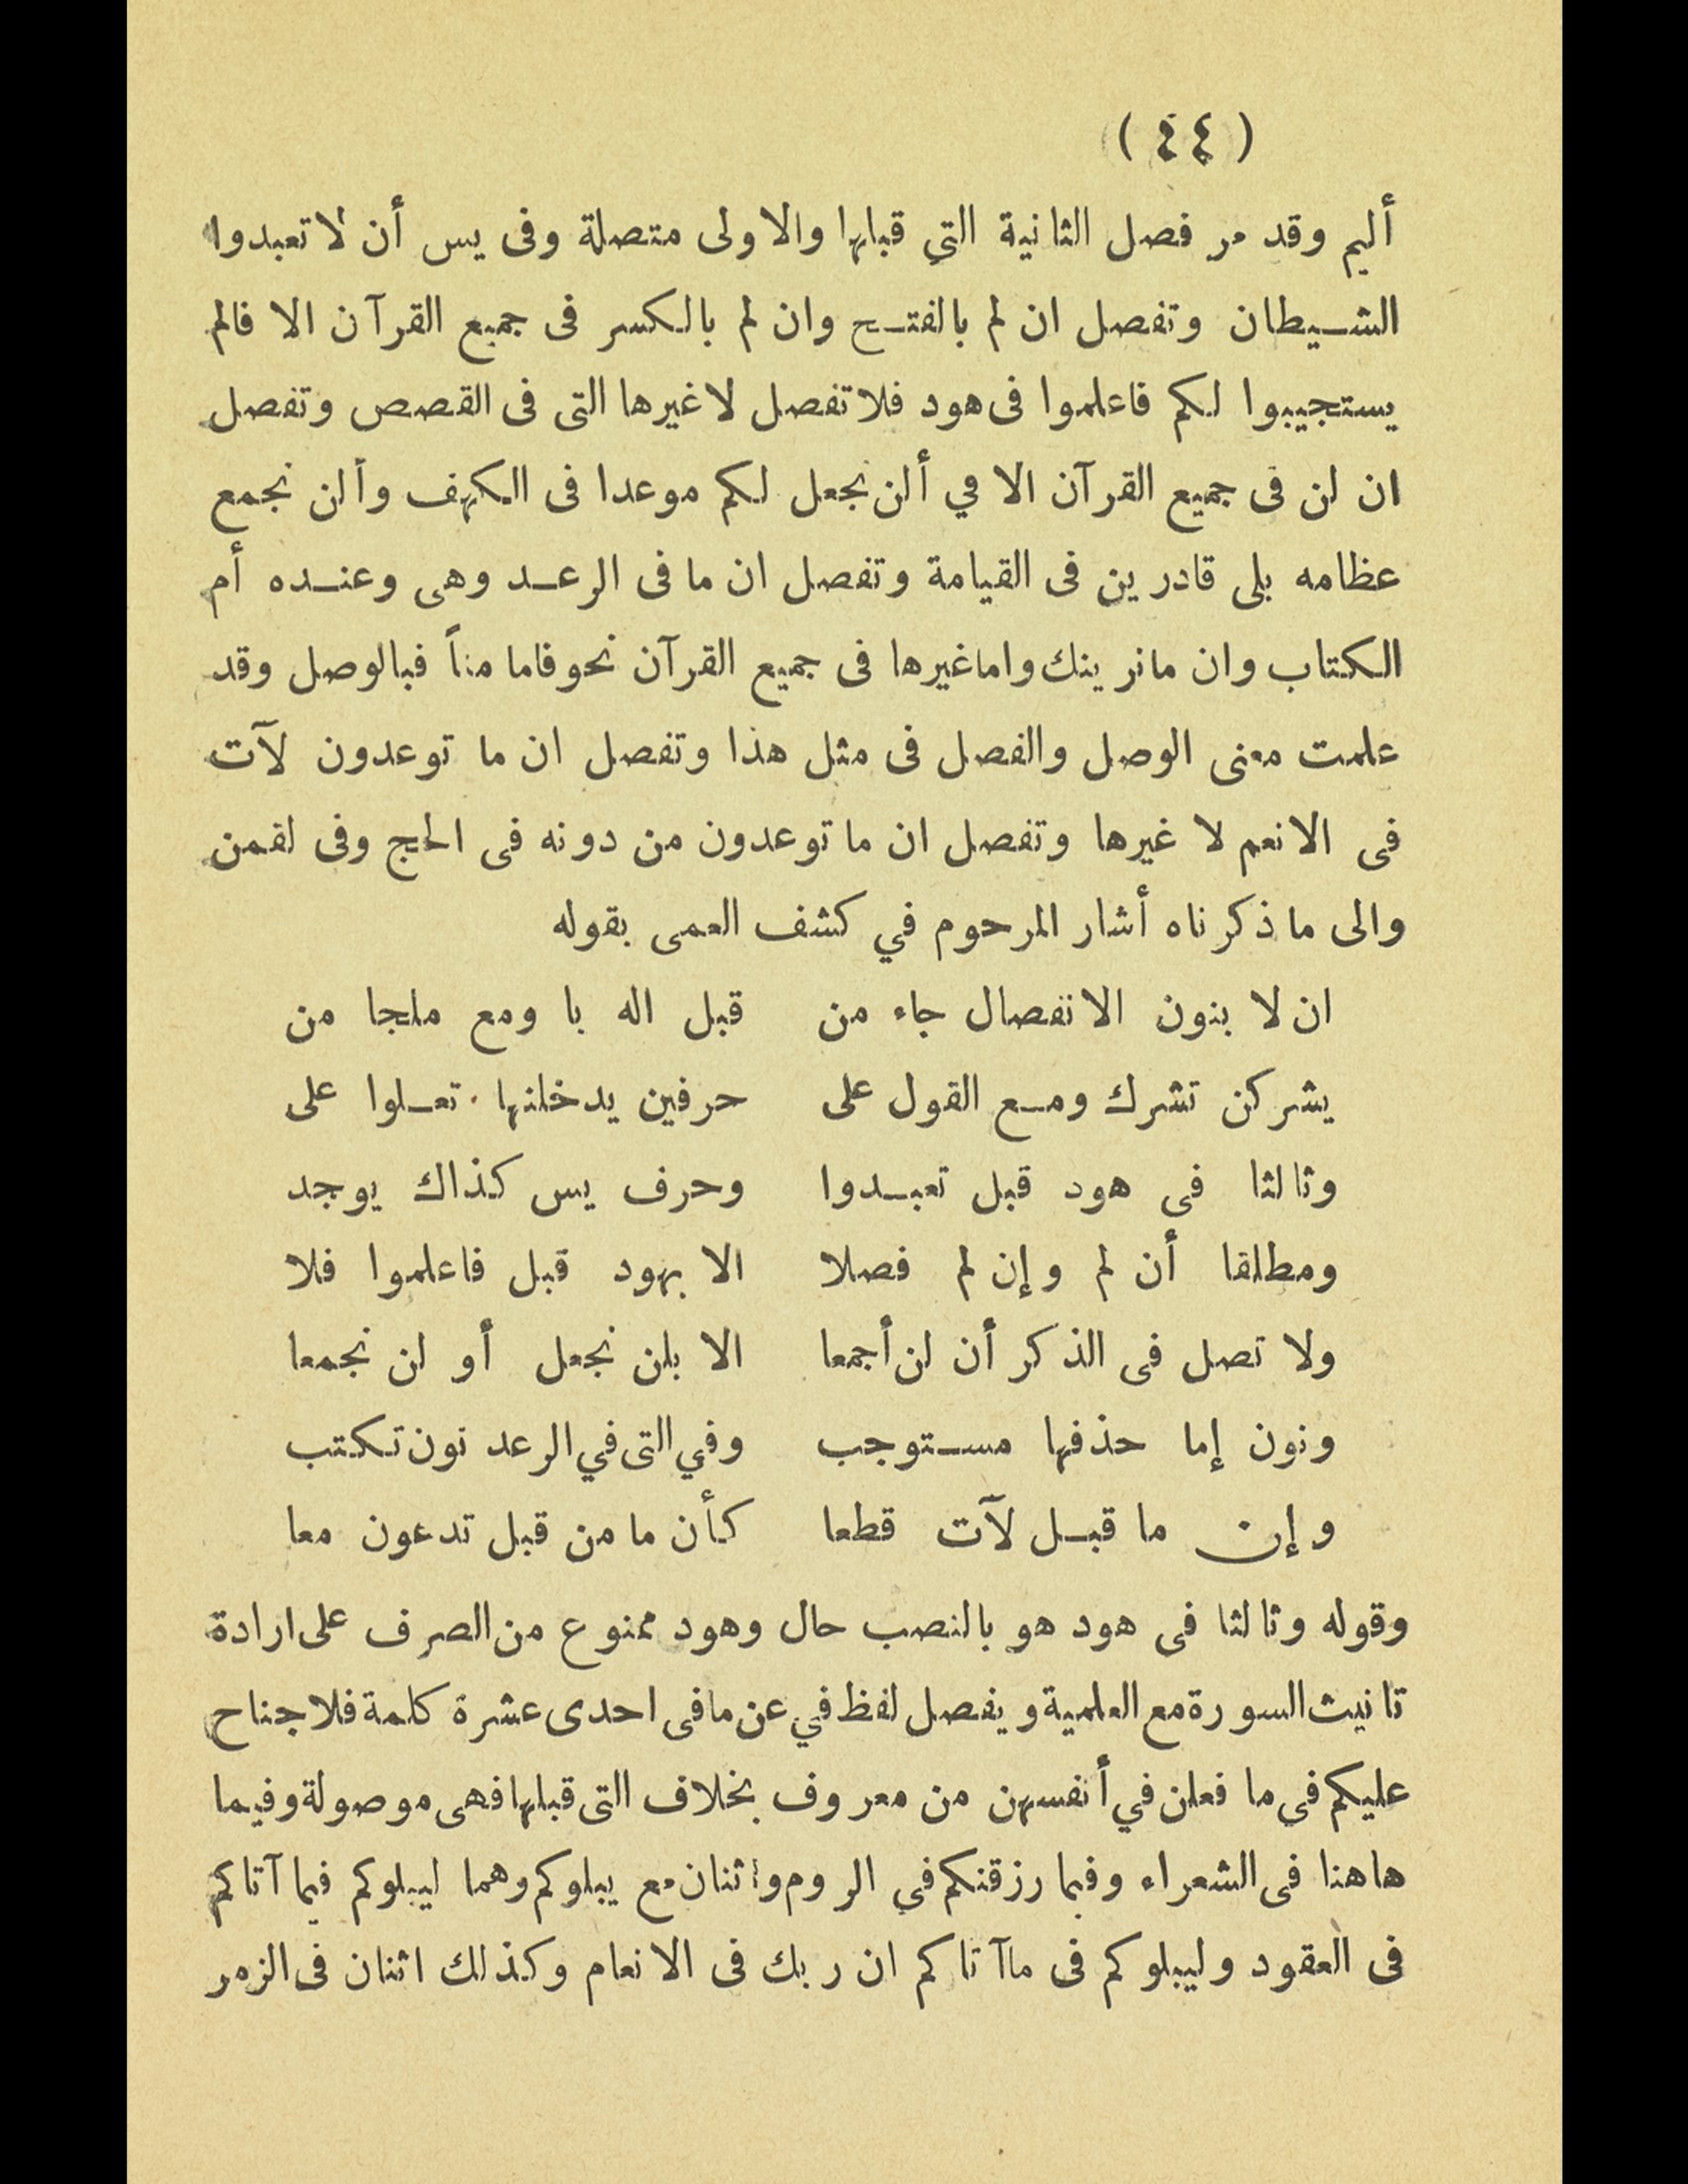 ( ٤٤ )
أليم وقد مر فصل الثانية التي قبلها والاولى متصلة وفى يس أن لا تعبدوا
الشيطان وتفصل ان لم بالفتح وان لم بالكسر فى جميع القرآن الا فالم
يستجيبوا لكم فاعلموا فى هود فلا تفصل لا غيرها التى فى القصص وتفصل
ان لن فى جميع القرآن الا في ألن نجعل لكم موعدا فى الكهف وألن نجمع
عظامه بلى قادرين فى القيامة وتفصل ان ما فى الرعد وهى وعنده أم
الكتاب وان ما نرينك واما غيرها فى جميع القرآن نحو فاما مناً فبالوصل وقد
علمت معنى الوصل والفصل فى مثل هذا وتفصل ان ما توعدون لآت
فى الانعم لا غيرها وتفصل ان ما توعدون من دونه فى الحج وفى لقمن
والى ما ذكرناه أشار المرحوم في كشف العمى بقوله
ان لا بنون الانفصال جاء من قبل اله با ومع ملجا من
يشركن تشرك ومع القول على حرفين يدخلنها تعلوا على
وثالثا فى هود قبل تعبدوا وحرف يس كذاك يوجد
ومطلقا أن لم وإن لم فصلا الا بهود قبل فاعلموا فلا
ولا تصل فى الذكر أن لن أجمعا الا بلن نجعل أو لن نجمعا
ونون إما حذفها مستوجب وفي التى في الرعد نون تكتب
وإن ما قبل لآت قطعا كأن ما من قبل تدعون معا
وقوله وثالثا فى هود هو بالنصب حال وهود ممنوع من الصرف على ارادة
تانيث السورة مع العلمية ويفصل لفظ في عن ما فى احدى عشرة كلمة فلا جناح
عليكم فى ما فعلن في أنفسهن من معروف بخلاف التى قبلها فهى موصولة وفيما
هاهنا فى الشعراء وفيما رزقنكم في الروم واثنان مع يبلوكم وهما ليبلوكم فيما آتاكم
فى العقود وليبلوكم فى ماآتاكم ان ربك فى الانعام وكذلك اثنان فى الزمر